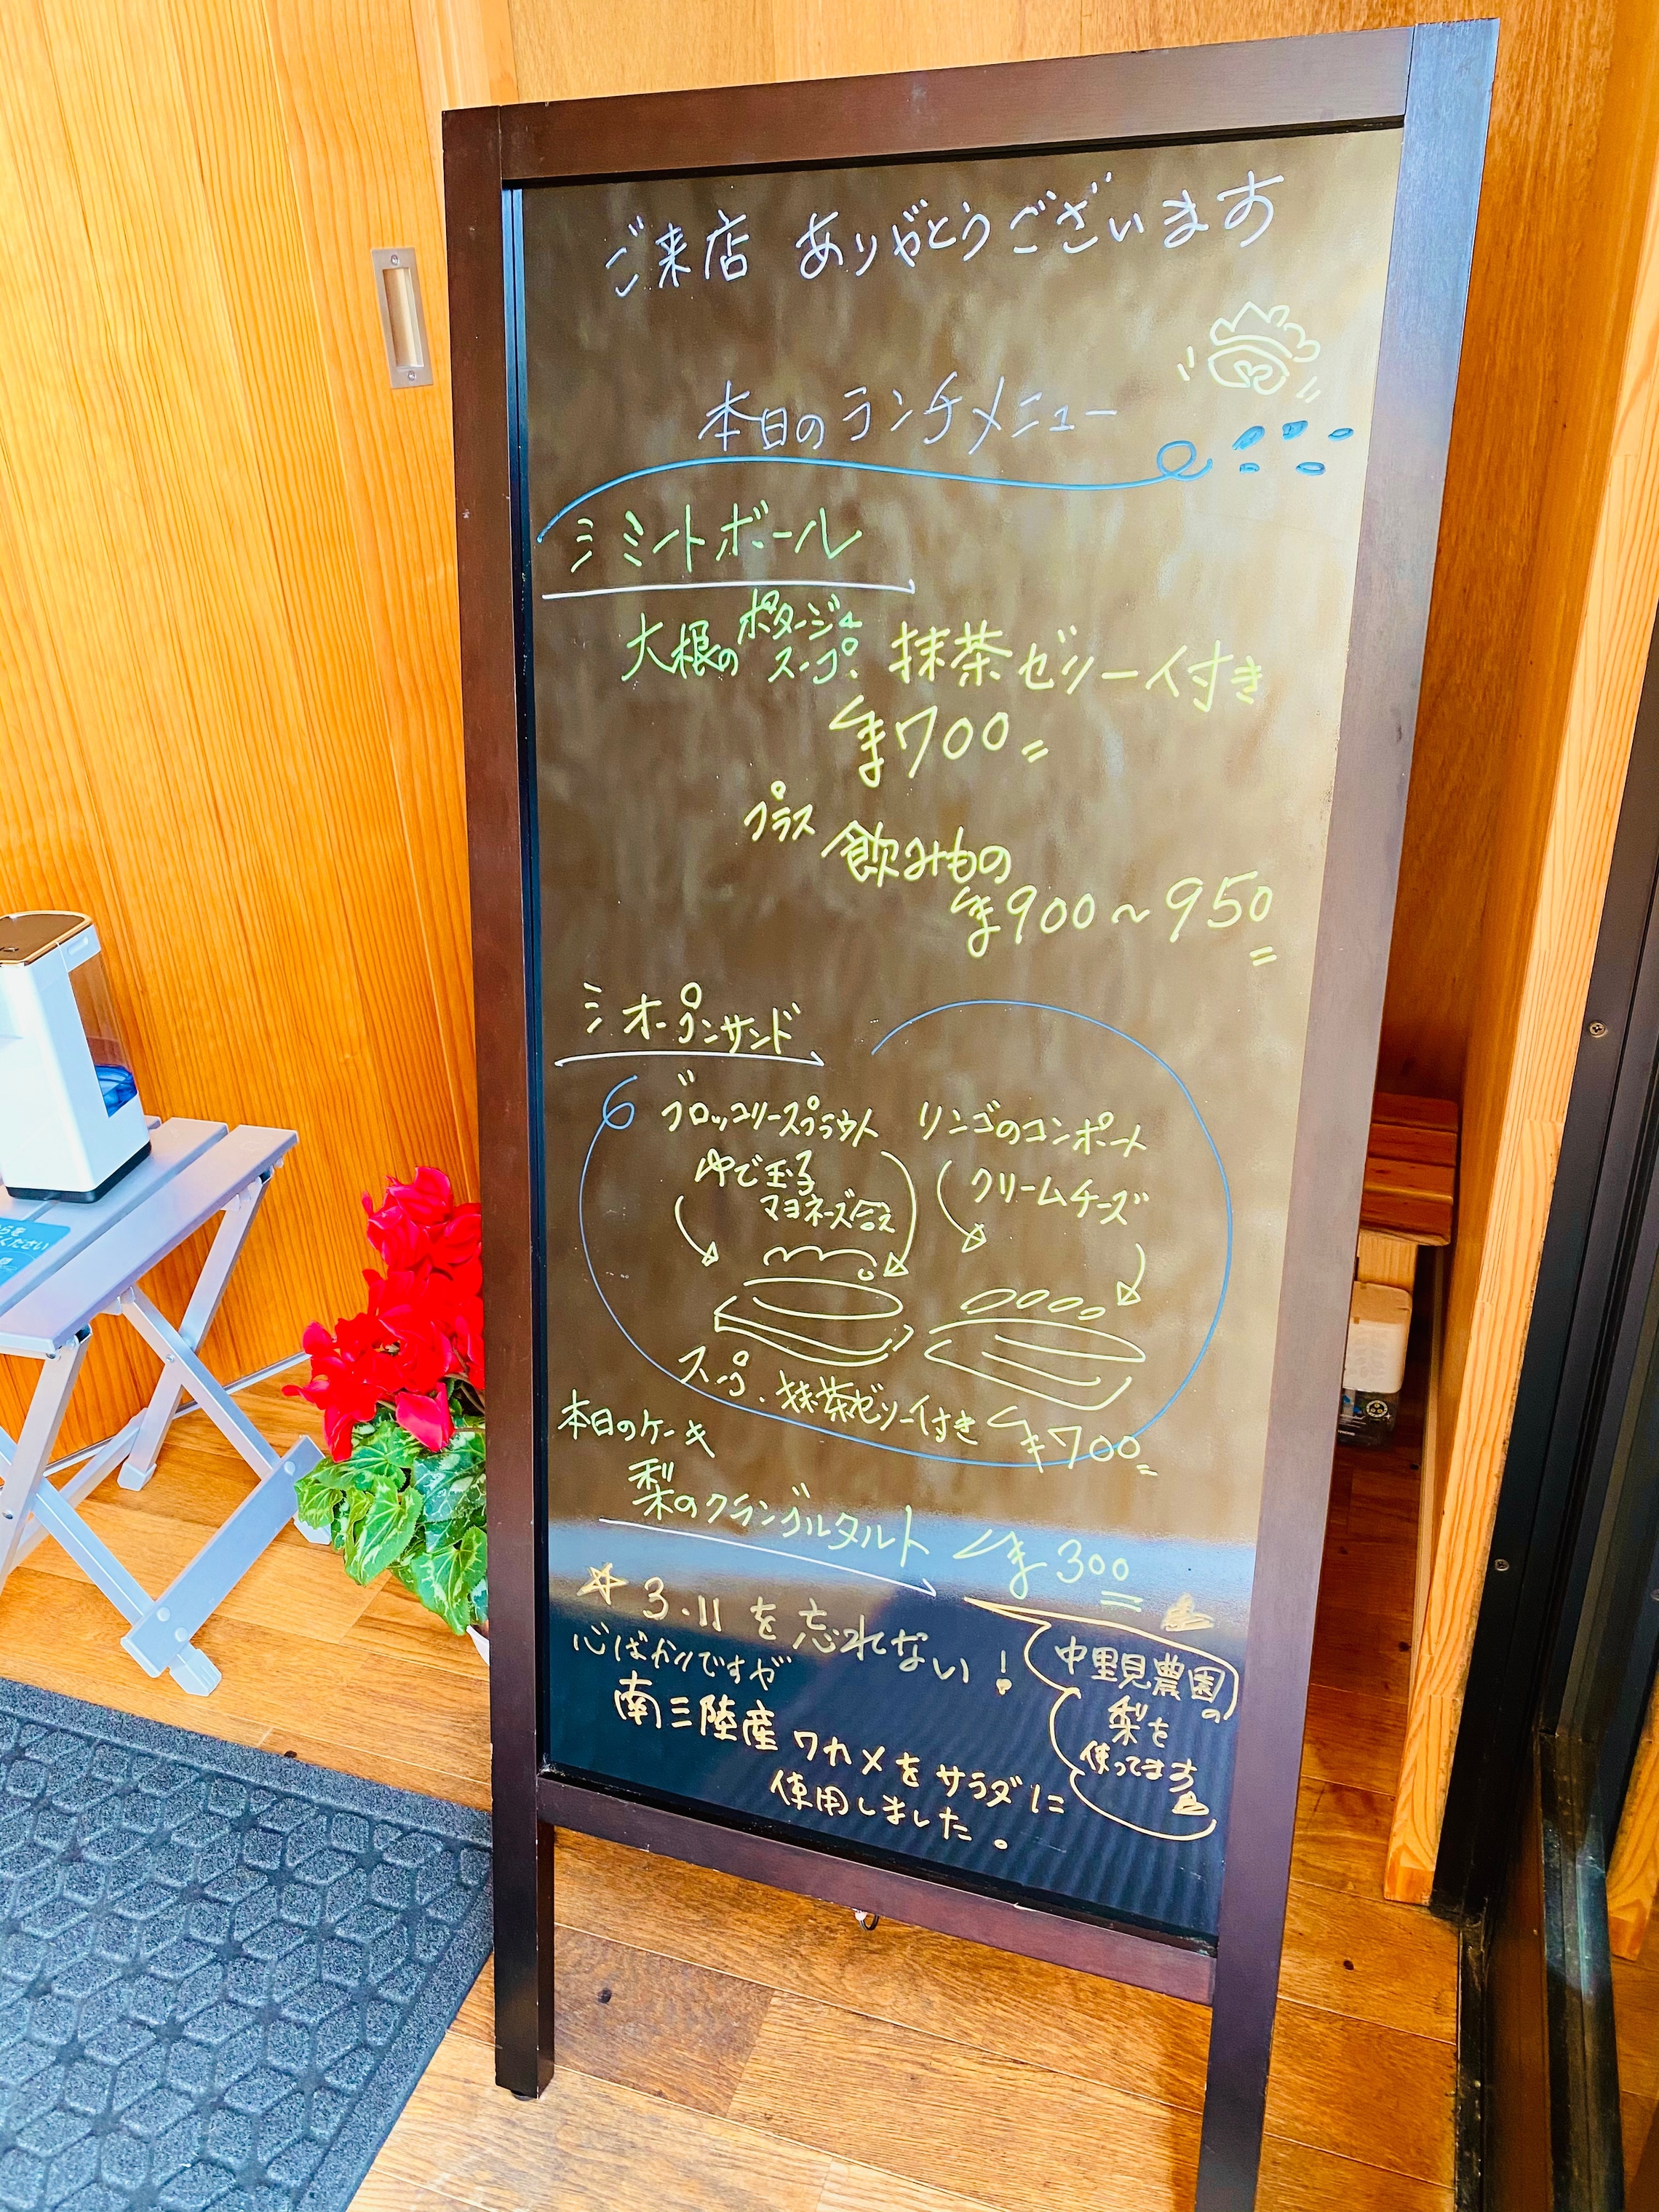 ご来店 ありがとうございます
本日のランチメニュー
ミートボール
大根の ポタージュ スープ. 抹茶ゼリー付き
¥700
プラス
飲みもの
¥900～950
オープンサンド
ブロッコリースプラウト
ゆで玉子
マヨネーズ合え
リンゴのコンポート
クリームチーズ
スープ . 抹茶ゼリー付き ¥700
本日のケーキ
梨のクランブルタルト ¥300
☆ 3.11を忘れない!
心ばかりですが
南三陸産 ワカメをサラダに
使用しました。
中里見農園の
梨を
使ってます